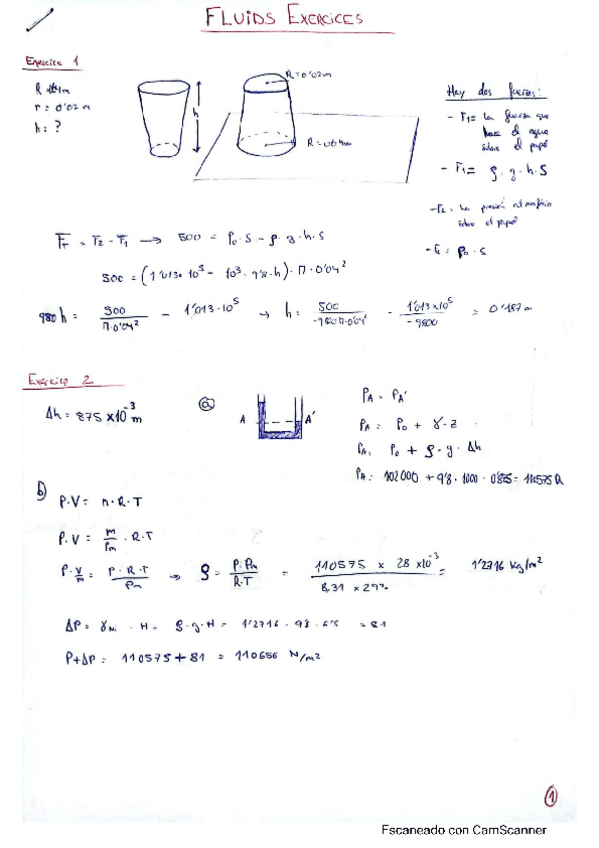 FLUIDS EXERCICES
Exercice 1
R = 0'04m
r = 0'02 m
h = ?
h
R = 0'02m
R = 0'04m
Hay dos fuerzas:
- F1 = la fuerza que
hace el agua
sobre el papel
- F1 = ρ · g · h · S
- F2 = la presión atmosférica
sobre el papel
= P0 · S
FT = F2 - F1 → 500 = P0 · S - ρ · g · h · S
500 = (1'013·10⁵ - 10³ · 9'8 · h) · π · 0'04²
980 h = 500 / π·0'04² - 1'013·10⁵ → h = 500 / -9800 π·0'04² - 1'013×10⁵ / -9800 = 0'187 m
Exercice 2
Δh = 875 ×10⁻³ m
a
A A'
PA = PA'
PA = P0 + γ · z
PA = P0 + ρ · g · Δh
PA = 102000 + 9'8 · 1000 · 0'875 = 110575 Pa
b)
P·V = n·R·T
P·V = m/Pm · R·T
P·V/m = P·R·T/Pm ⇒ ρ = P·Pm/R·T = 110575 × 28 ×10⁻³ / 8.31 × 293 = 1'2716 Kg/m²
ΔP = γm · H = ρ·g·H = 1'2716 · 98 · 6'5 = 81
P+ΔP = 110575 + 81 = 110656 N/m²
1
Escaneado con CamScanner